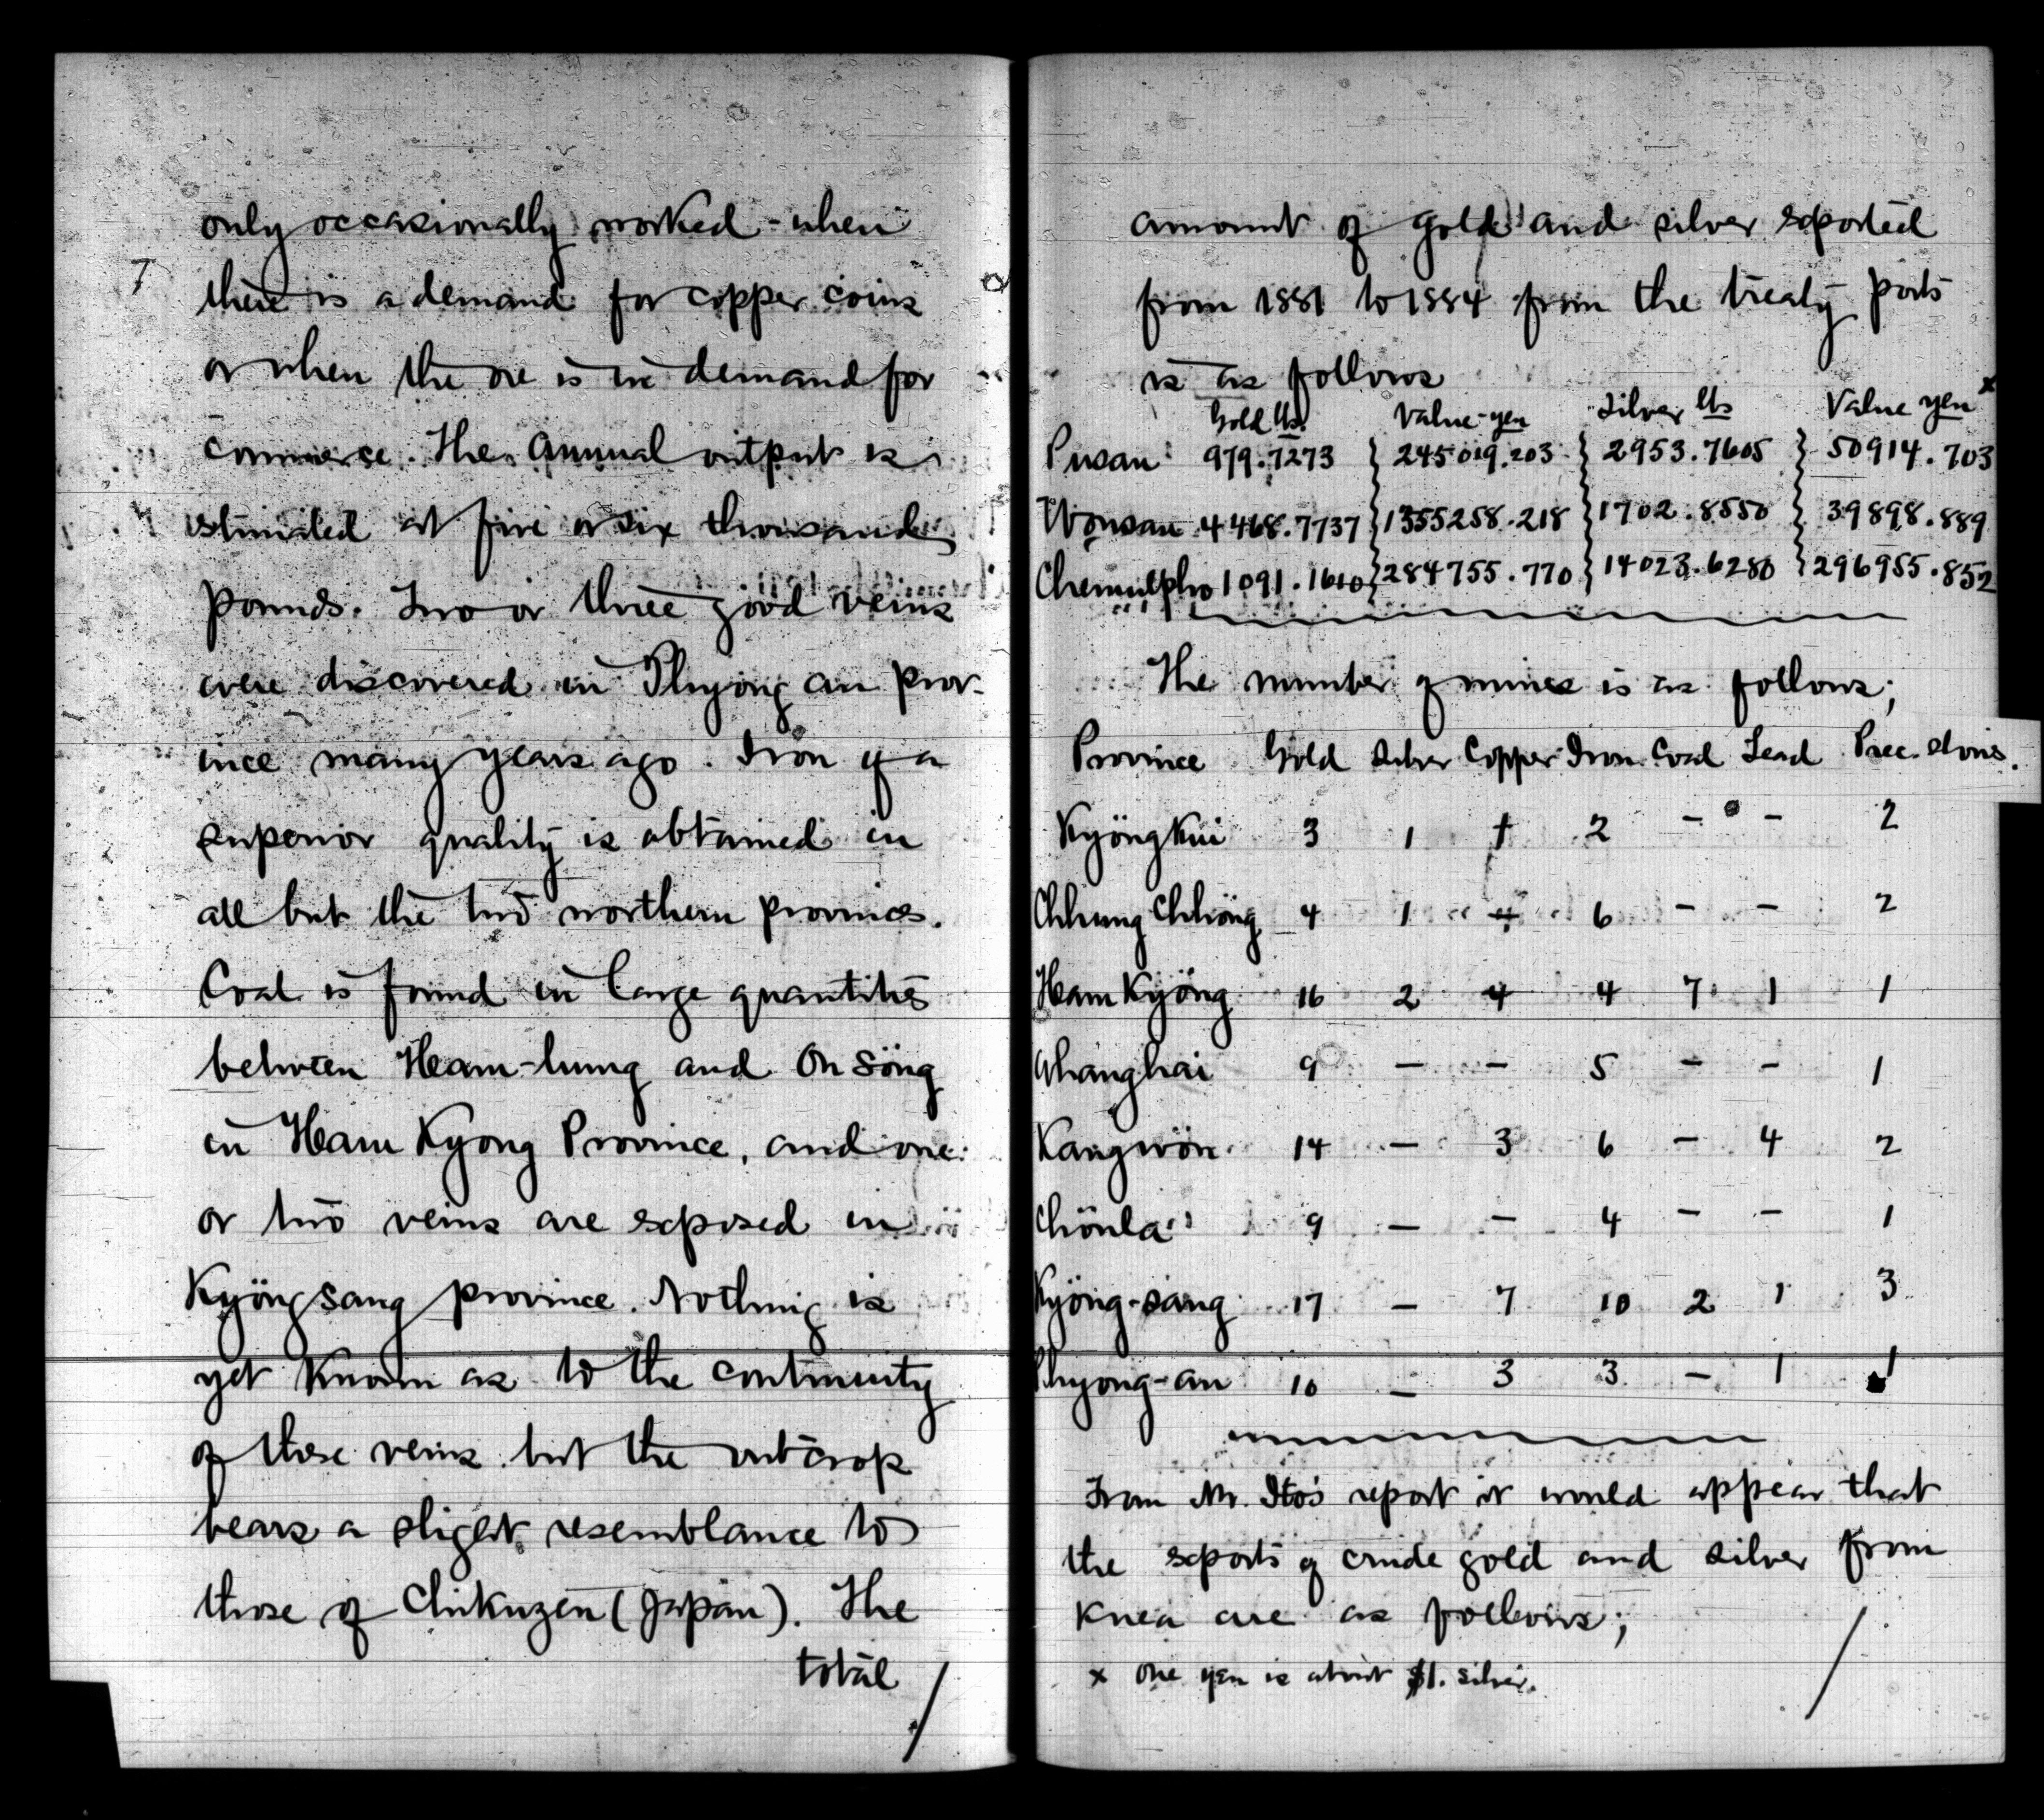 only occasionally worked - when
7
there is a demand for copper coins
or when the ore is in demand for
commerce. The annual output is
estimated at five or six thousand
pounds. Two or three good veins
were discovered in Phyong an prov-
ince many years ago. Iron of a
superior quality is obtained in
all but the two northern provinces.
Coal is found in large quantities
between Ham-hung and On Söng
in Ham Kyong Province, and one
or two veins are exposed in
Kyöng sang province. Nothing is
yet known as to the continuity
of these veins but the outcrop
bears a slight resemblance to
those of Chikuzen (Japan). The
total
amount of gold and silver exported
from 1881 to 1884 from the treaty ports
is as follows
Gold lbs. Value-yen Silver lbs Value yen x
Pusan 979.7273 } 245019.203 } 2953.7605 } 50914.703
Wonsan 4468.7737 } 1355258.218 } 1702.8550 } 39898.889
Chemulpho 1091.1610 } 284755.770 } 14023.6280 } 296955.852
The number of mines is as follows;
Province Gold Silver Copper Iron Coal Lead Prec. stones.
Kyöng Kui 3 1 1 2 - - 2
Chhung Chhöng 4 1 4 6 - - 2
Ham Kyöng 16 2 4 4 7 1 1
Whanghai 9 - - 5 - - 1
Kang wön 14 - 3 6 - 4 2
Chönla 9 - - 4 - - 1
Kyöng-sang 17 - 7 10 2 1 3
Phyong-an 10 - 3 3 - 1 1
From Mr. Ito's report it would appear that
the exports of crude gold and silver from
Korea are as follows;
x One yen is about $1. silver.